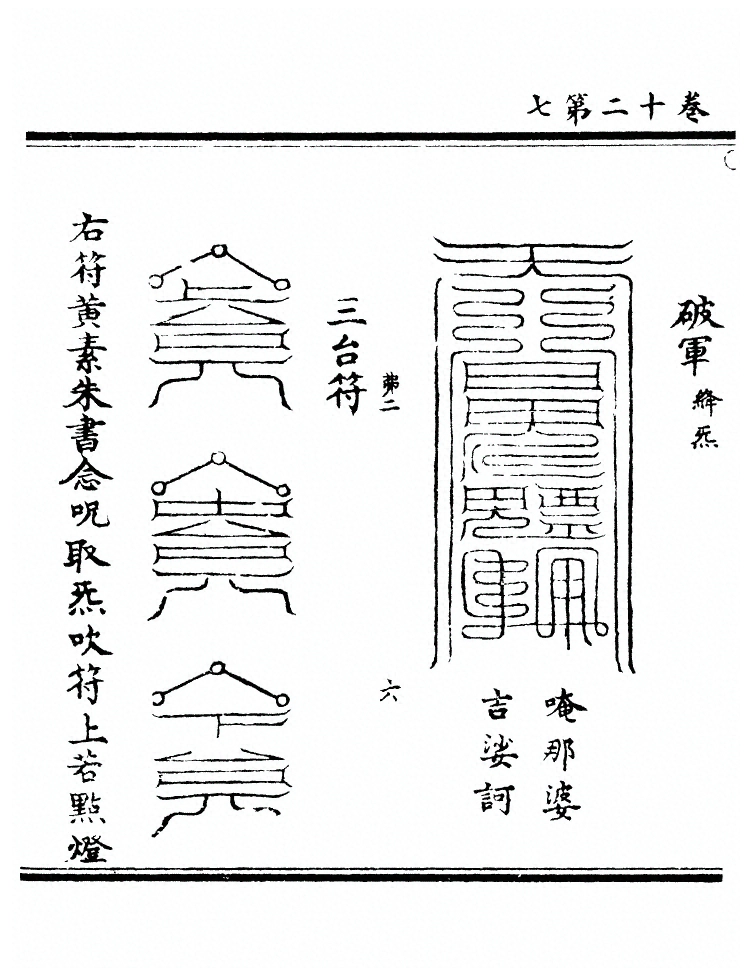 卷十二第七
破軍 絳炁
唵那婆
吉娑訶
第二
六
三台符
右符黃素朱書念呪取炁吹符上若點燈